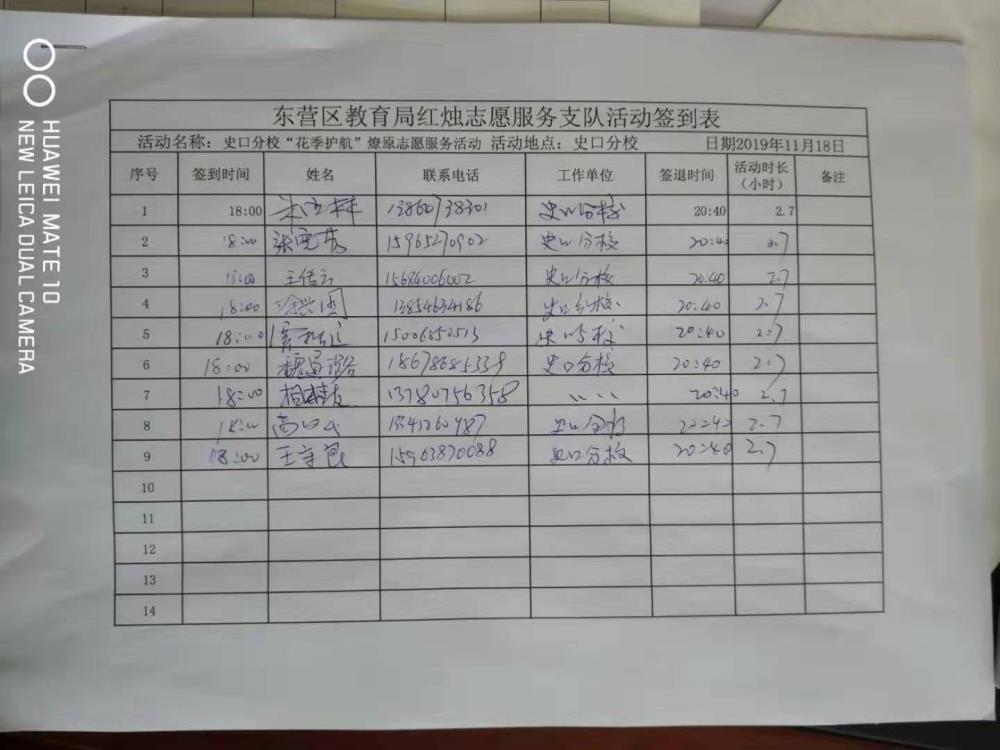 HUAWEI MATE 10
NEW LEICA DUAL CAMERA
东营区教育局红烛志愿服务支队活动签到表
活动名称：史口分校“花季护航”燎原志愿服务活动 活动地点：史口分校 日期2019年11月18日
序号 签到时间 姓名 联系电话 工作单位 签退时间 活动时长（小时） 备注
1 18:00 史口分校 20:40 2.7
2 18:00 15965270902 史口分校 20:40 2.7
3 18:00 王传云 15684006002 史口分校 20:40 2.7
4 18:00 13854634186 史口分校 20:40 2.7
5 18:00 15006850513 史口分校 20:40 2.7
6 18:00 18678685339 史口分校 20:40 2.7
7 18:00 13780756358 〃 〃 20:40 2.7
8 18:00 史口分校 20:40 2.7
9 18:00 王守良 15963870088 史口分校 20:40 2.7
10
11
12
13
14